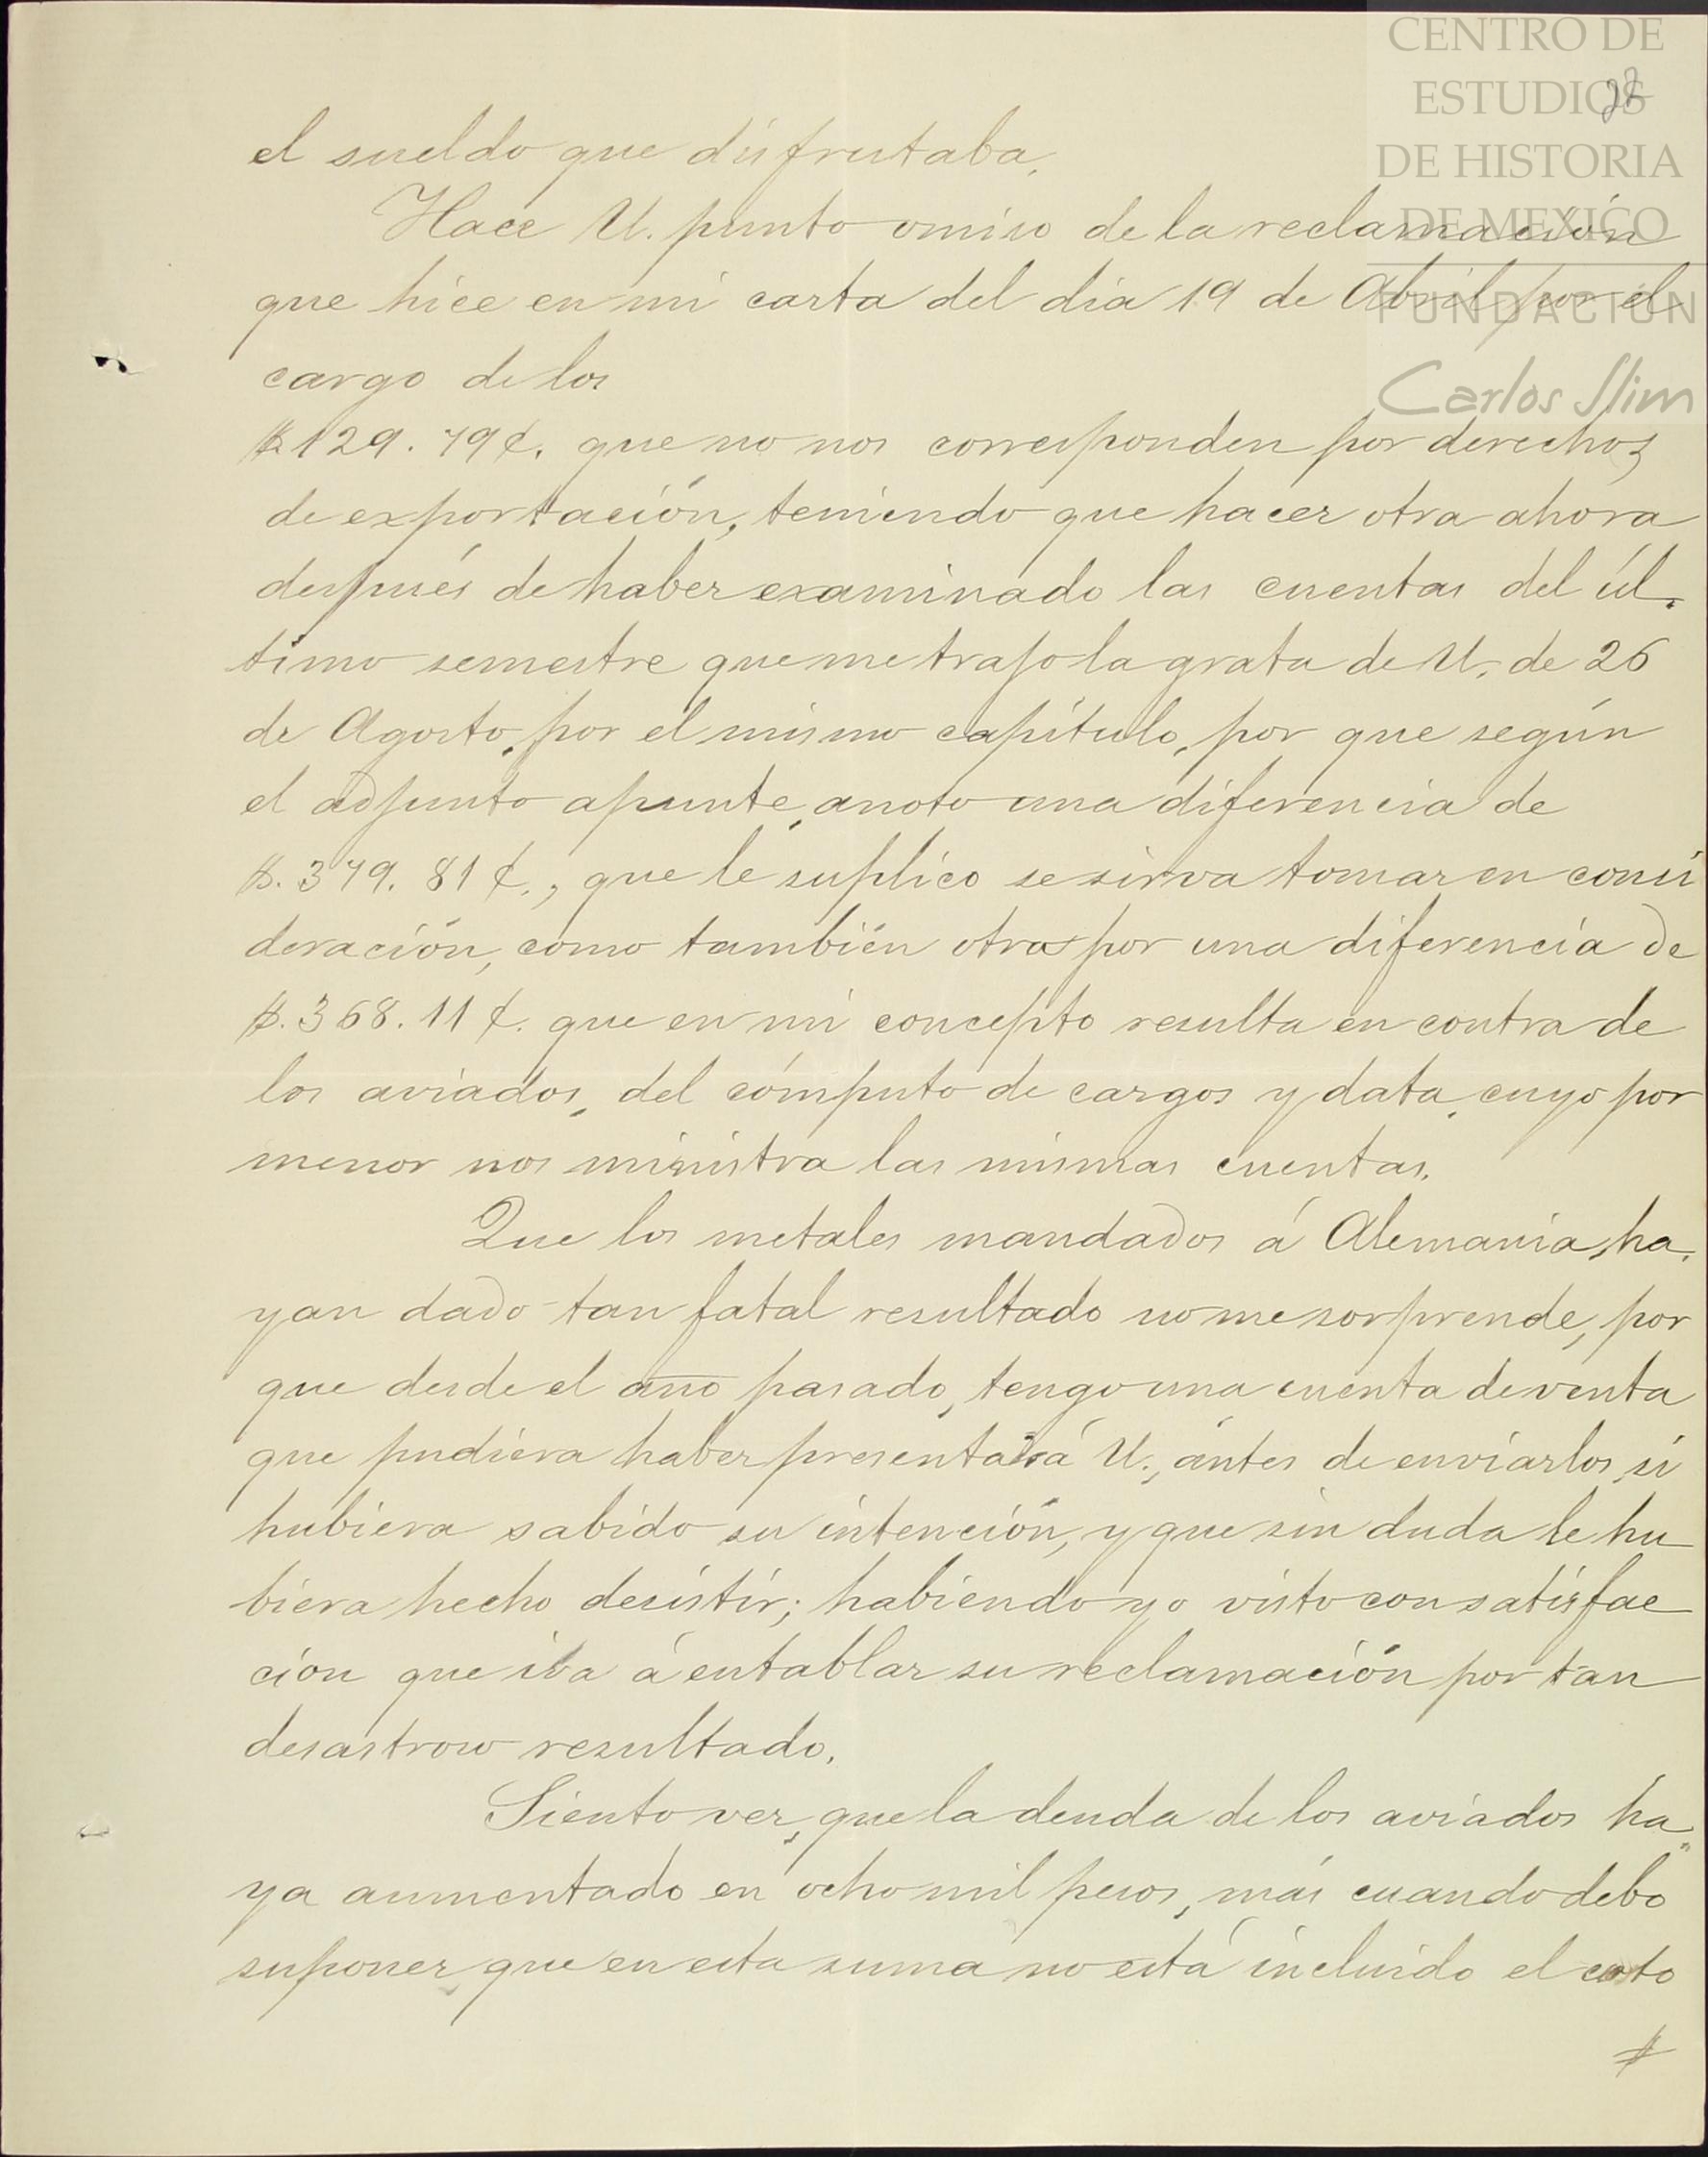 CENTRO DE
ESTUDIOS
DE HISTORIA
DE MEXICO
FUNDACIÓN
Carlos Slim
el sueldo que disfrutaba.
Hace U. punto omiso de la reclamación
que hice en mi carta del dia 19 de Abril por el
cargo de los
$129.79¢. que no nos corresponden por derechos
de exportación, teniendo que hacer otra ahora
después de haber examinado las cuentas del úl-
timo semestre que me trajo la grata de U. de 26
de Agosto, por el mismo capítulo, por que según
el adjunto apunte, anoto una diferencia de
$.379.81¢., que le suplico se sirva tomar en consi
deración, como también otra por una diferencia de
$.368.11¢. que en mi concepto resulta en contra de
los aviados, del cómputo de cargos y data, cuyo por
menor nos ministra las mismas cuentas.
Que los metales mandados á Alemania, ha-
yan dado tan fatal resultado no me sorprende, por
que desde el año pasado, tengo una cuenta de venta
que pudiera haber presentado á U., ántes de enviarlos, si
hubiera sabido su intención, y que sin duda le hu
biera hecho desistir; habiendo yo visto con satisfac
ción que iba á entablar su reclamación por tan
desastroso resultado.
Siento ver, que la deuda de los aviados ha-
ya aumentado en ocho mil pesos, más cuando debo
suponer, que en esta suma no está incluido el costo
#